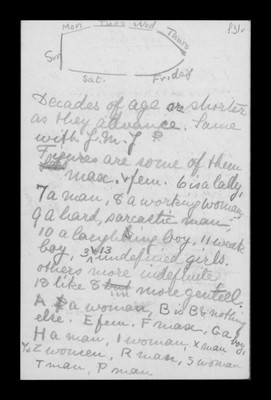 P31v
Mon Tues Wed Thurs
Sun
Sat. Friday
Decades of age are shorter
as they advance. Same
with J.M.J ?
Figures are some of them
masc. & fem. 6 is a lady,
7 a man, 8 a working woman,
9 a hard, sarcastic man,
10 a lazy boy, 11 weak
boy, 3 & 13 indefined girls.
others more indefinite
18 like 8 but more genteel.
A a woman, B is B & nothing
else. E fem. F masc, G a boy,
H a man, I woman, X man
Y, Z women, R man, S woman
T man, P man